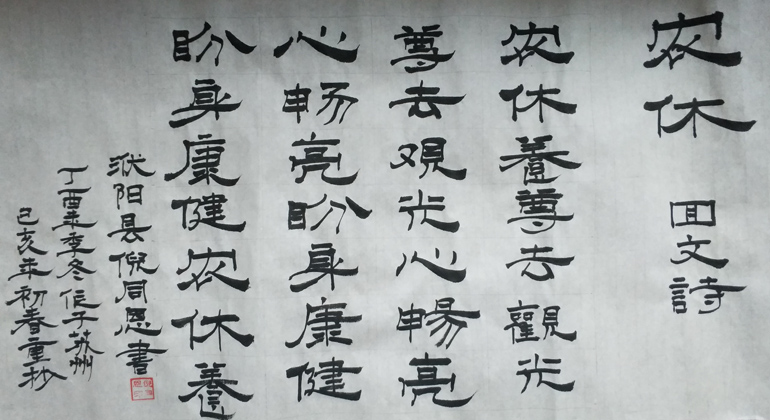 农休 囬文詩
农休養尊去觀光
尊去观光心暢亮
心畅亮盼身康健
盼身康健农休養
沭阳县倪同恩書
丁酉年季冬作于苏州
己亥年初春重抄